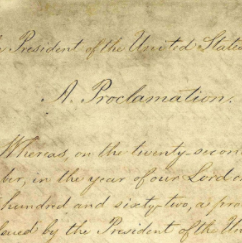 President of the United State
A Proclamation.
Whereas, on the twenty-secon
ber, in the year of our Lord o
hundred and sixty-two, a pro
sued by the President of the Un